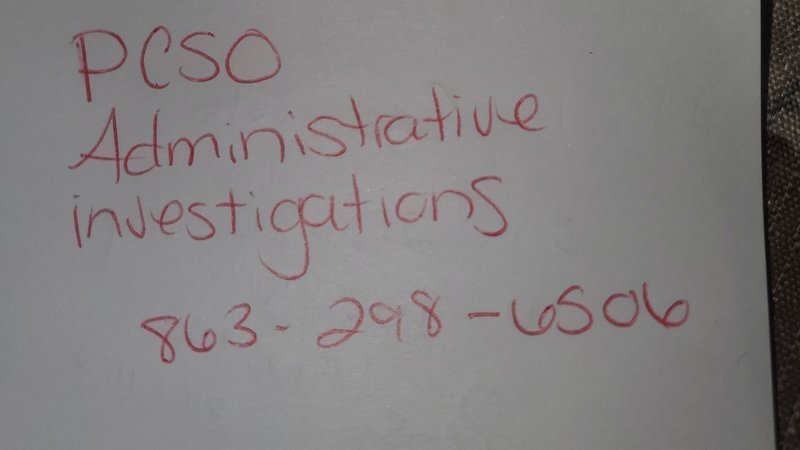 PCSO
Administrative
investigations
863-298-6506